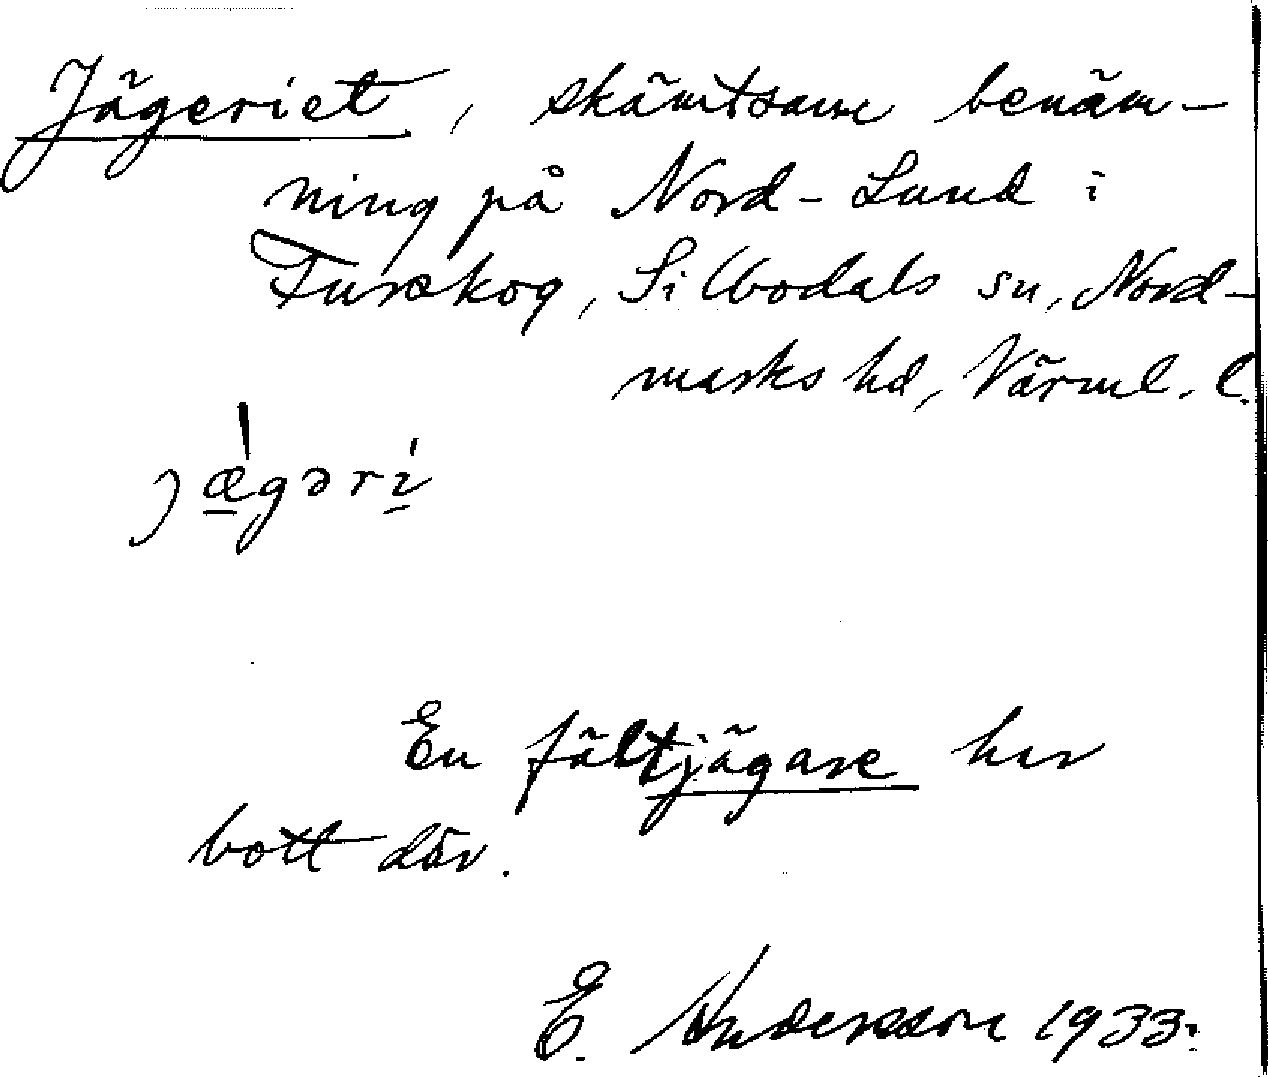 Jägeriet, skämtsam benäm-
ning på Nord-Lund i
Furskog, Silbodals sn, Nord-
marks hd, Värml. l.
jæ̀gəri
En fältjägare har
bott där.
E. Andersson 1933.